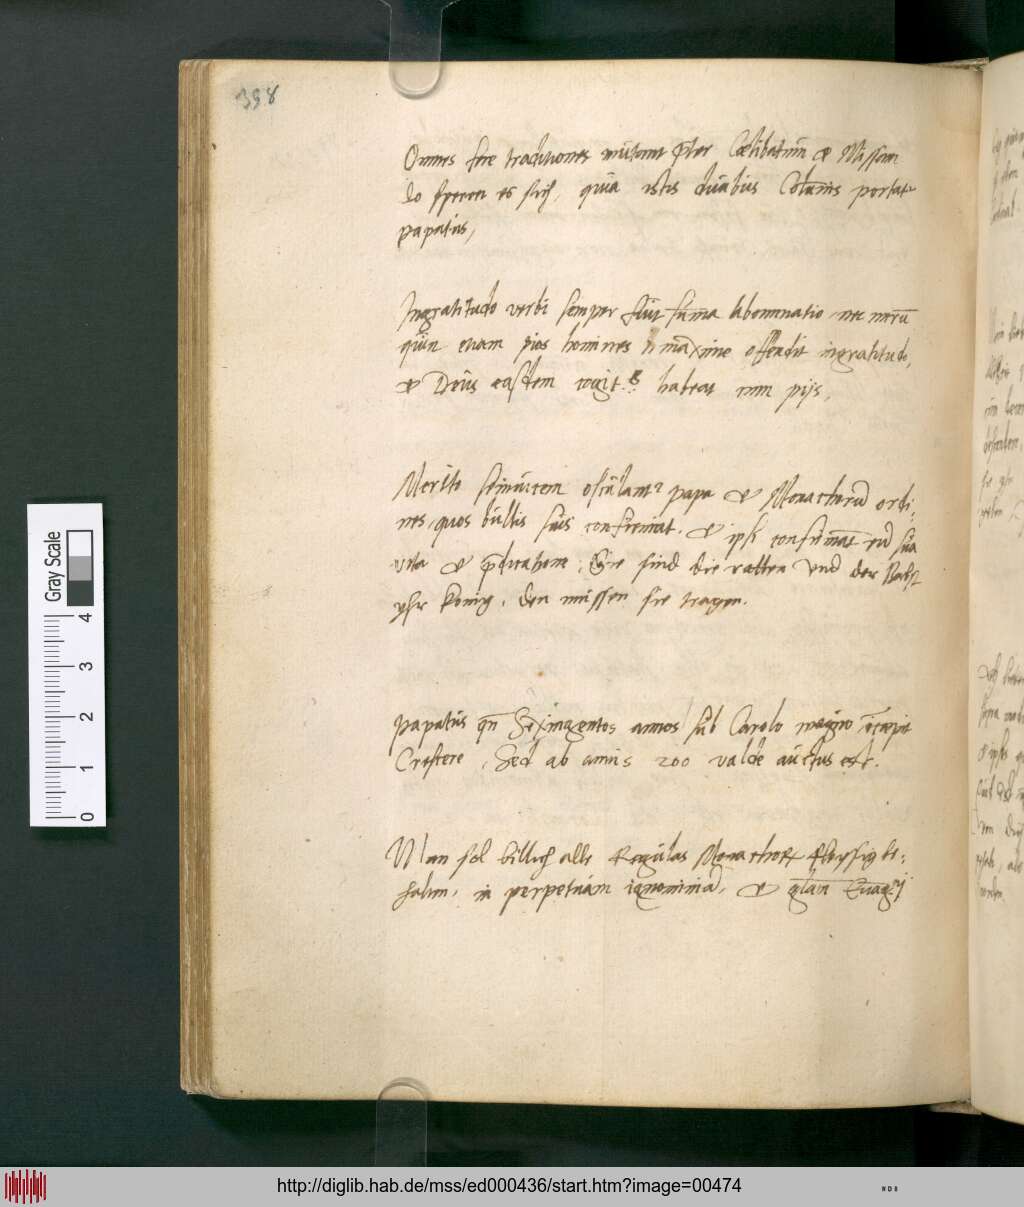 398
Omnes fere traditiones mutant p̄ter Cœlibatum̄ & Missam
do sperren es sich, quia istis duabus Colum̄is portat᷑
papatus,
Ingratitudo verbi semper fuit sum̄a abominatio, nec mirū
quin etiam pios homines maxime offendit ingratitudo,
& Deus easdem cogit habeat cum pijs,
Merito seinuicem osculant᷑ papa & Monachorū ordi:
nes, quos bullis suis confirmat. & ipsi confirmāt eū sua
vita & p̄dicatione, Sie sind die ratten vnd der Babst
yhr konig, den mussen sie tragen.
papatus Sexingentos annos sub Carolo magno cœpit
Crescere, Sed ab annis 200 valde auctus est.
Man sol billich alle Regulas Monachorum fleyssig be:
halten, in perpetuam ignominiā, & glām Euāgij
Gray Scale
0 1 2 3 4
http://diglib.hab.de/mss/ed000436/start.htm?image=00474